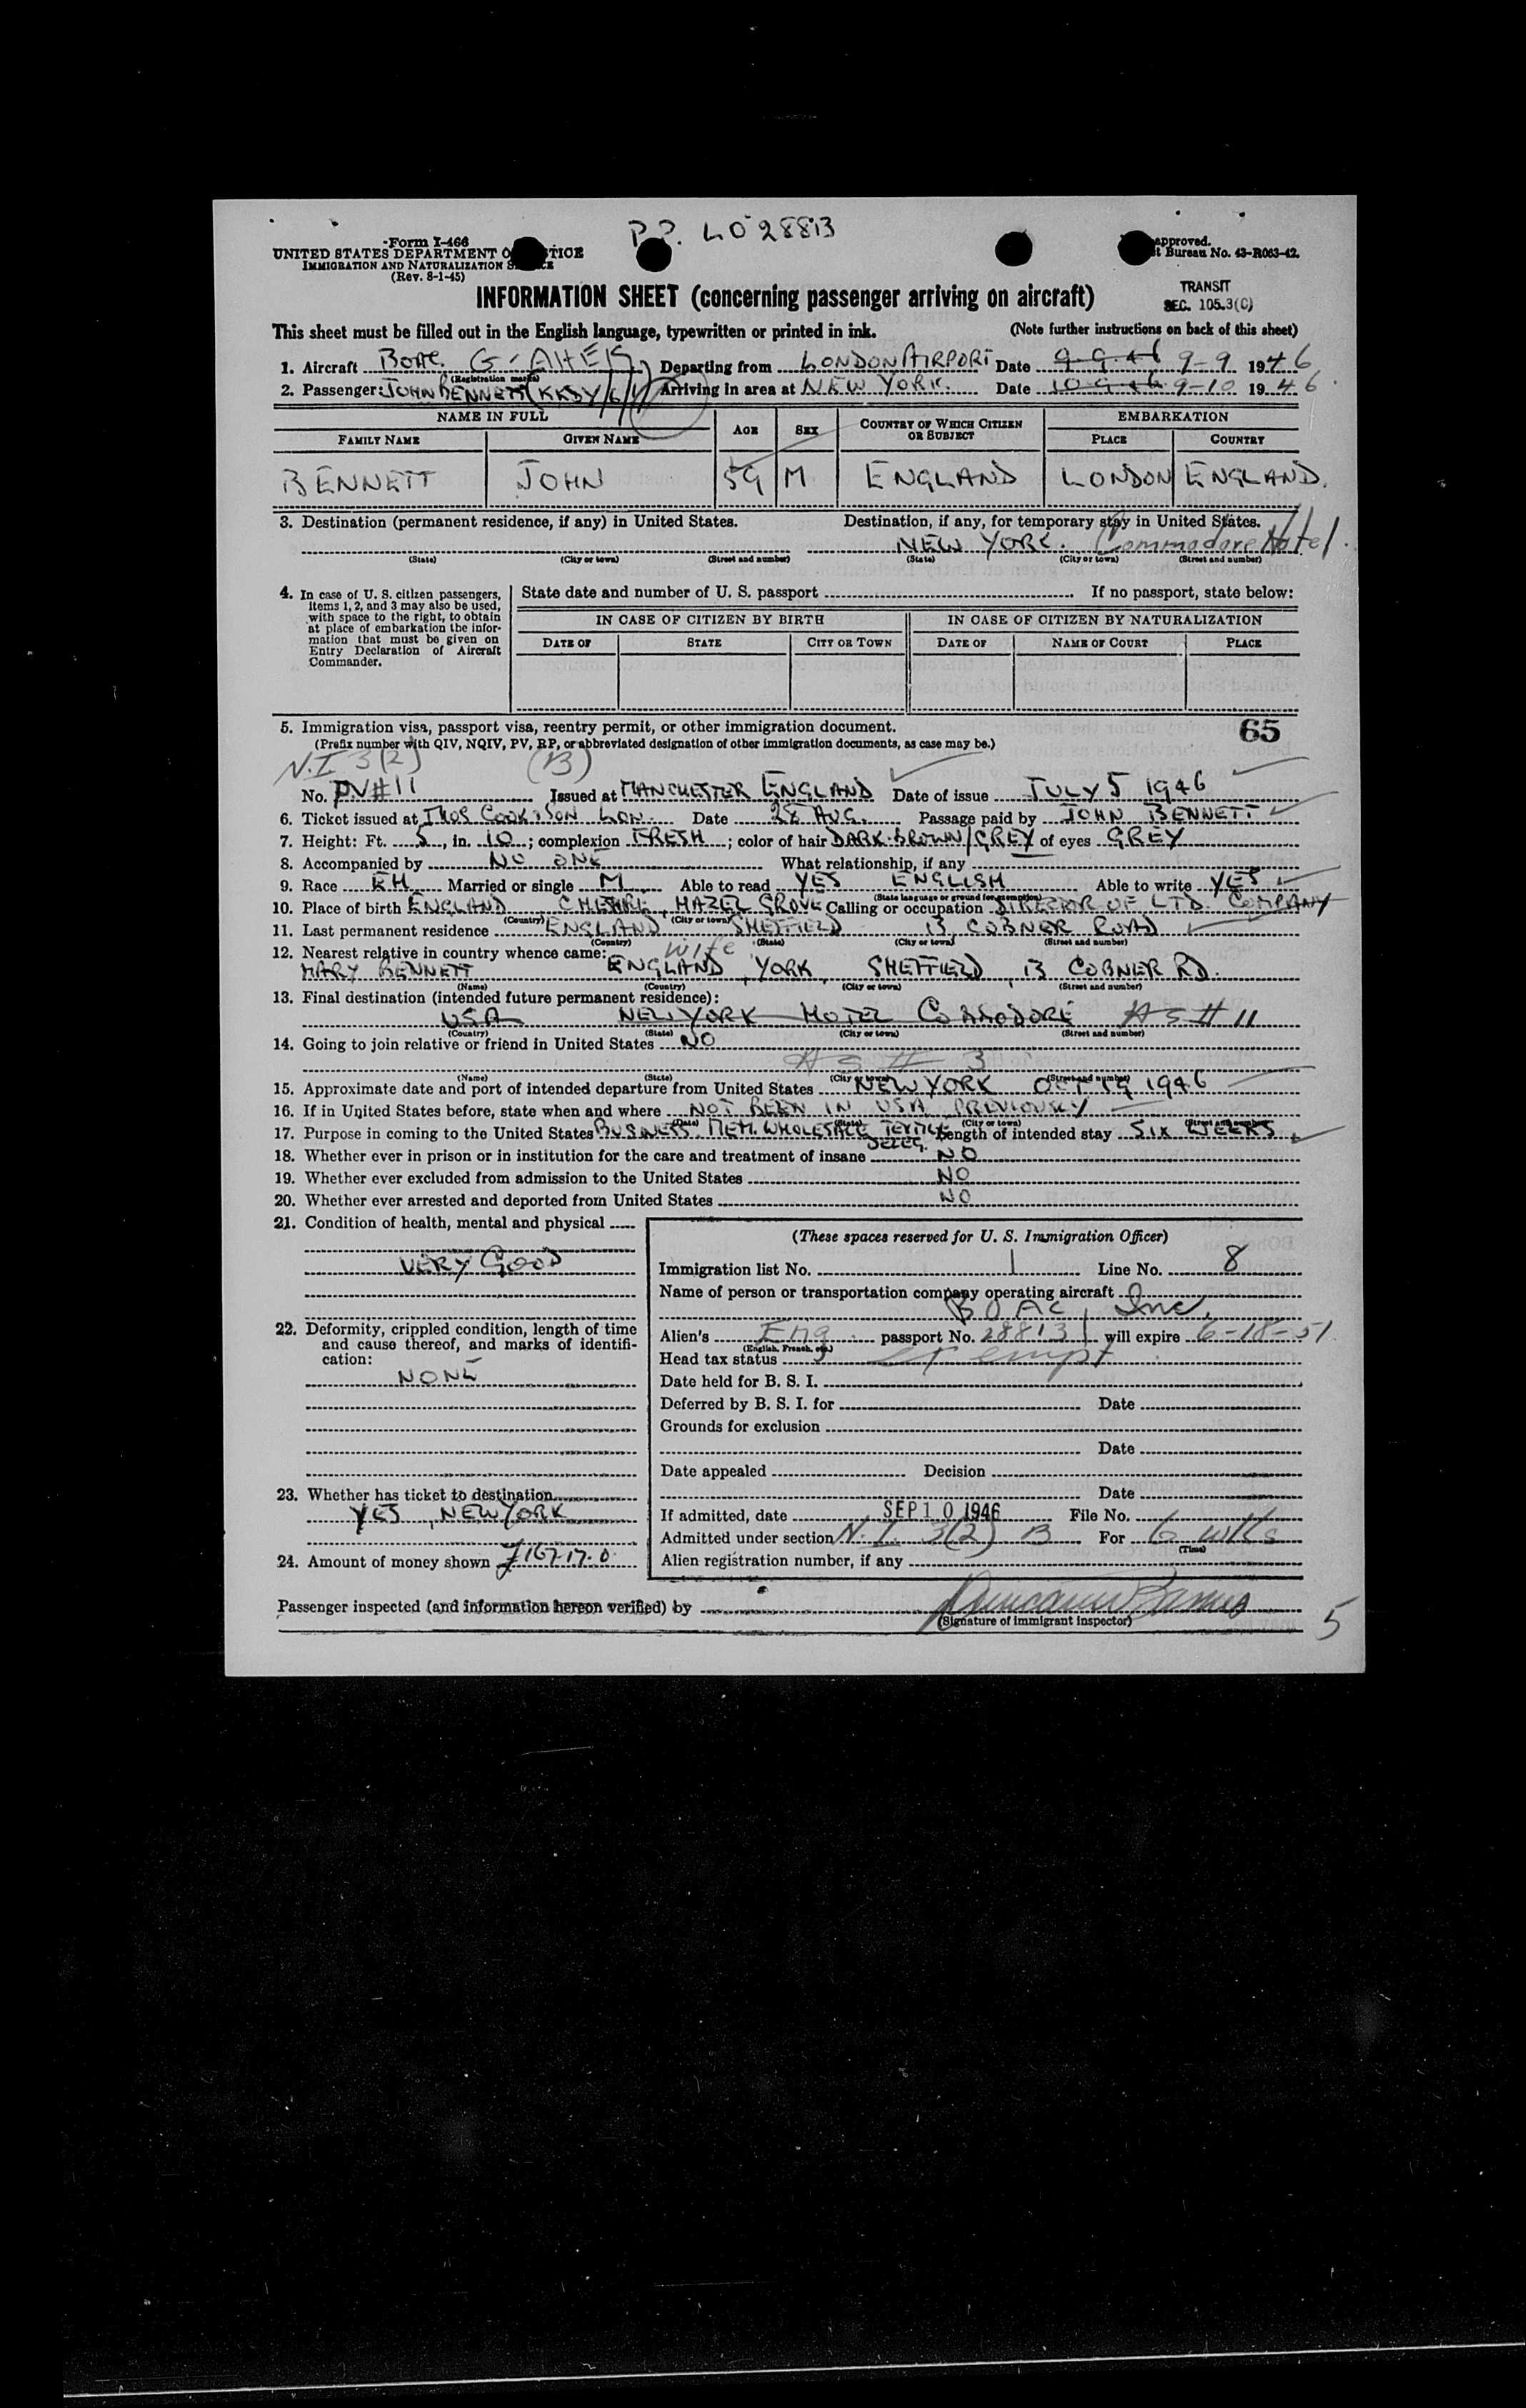 P.P. LO 28813
Form I-466
UNITED STATES DEPARTMENT OF JUSTICE
IMMIGRATION AND NATURALIZATION SERVICE
(Rev. 8-1-45)
approved.
t Bureau No. 43-R063-42.
INFORMATION SHEET (concerning passenger arriving on aircraft)
TRANSIT
SEC. 105.3(C)
This sheet must be filled out in the English language, typewritten or printed in ink. (Note further instructions on back of this sheet)
1. Aircraft BOAC G-AHEK Departing from LONDON AIRPORT Date 9.9.46 9-9 1946
(Registration marks)
2. Passenger: JOHN BENNETT Arriving in area at NEW YORK. Date 10.9.46 9-10 1946
NAME IN FULL AGE SEX COUNTRY OF WHICH CITIZEN OR SUBJECT EMBARKATION
FAMILY NAME GIVEN NAME PLACE COUNTRY
BENNETT JOHN 59 M ENGLAND LONDON ENGLAND.
3. Destination (permanent residence, if any) in United States. Destination, if any, for temporary stay in United States.
NEW YORK. Commodore Hotel.
(State) (City or town) (Street and number) (State) (City or town) (Street and number)
4. In case of U. S. citizen passengers, items 1, 2, and 3 may also be used, with space to the right, to obtain at place of embarkation the information that must be given on Entry Declaration of Aircraft Commander.
State date and number of U. S. passport If no passport, state below:
IN CASE OF CITIZEN BY BIRTH IN CASE OF CITIZEN BY NATURALIZATION
DATE OF STATE CITY OR TOWN DATE OF NAME OF COURT PLACE
5. Immigration visa, passport visa, reentry permit, or other immigration document. 65
(Prefix number with QIV, NQIV, PV, RP, or abbreviated designation of other immigration documents, as case may be.)
N.I 3(2) (B)
No. PV#11 Issued at MANCHESTER ENGLAND Date of issue JULY 5 1946
6. Ticket issued at THOS COOK & SON LON. Date 28 AUG. Passage paid by JOHN BENNETT
7. Height: Ft. 5, in. 10; complexion FRESH; color of hair DARK-BROWN/GREY of eyes GREY
8. Accompanied by NO ONE What relationship, if any
9. Race EH Married or single M Able to read YES ENGLISH Able to write YES
(State language or ground for exemption)
10. Place of birth ENGLAND CHESHIRE, HAZEL GROVE Calling or occupation DIRECTOR OF LTD COMPANY
(Country) (City or town)
11. Last permanent residence ENGLAND SHEFFIELD 13, COBNER ROAD
(Country) (State) (City or town) (Street and number)
12. Nearest relative in country whence came: Wife
MARY BENNETT ENGLAND, YORK, SHEFFIELD, 13 COBNER RD.
(Name) (Country) (City or town) (Street and number)
13. Final destination (intended future permanent residence):
USA NEW YORK HOTEL COMMODORE As # 11
(Country) (State) (City or town) (Street and number)
14. Going to join relative or friend in United States NO
As # 3
(Name) (State) (City or town) (Street and number)
15. Approximate date and port of intended departure from United States NEW YORK OCT 19 1946
16. If in United States before, state when and where NOT BEEN IN USA PREVIOUSLY
(Date) (State) (City or town) (Street and number)
17. Purpose in coming to the United States BUSINESS. MEM. WHOLESALE TEXTILE DELEG. Length of intended stay SIX WEEKS
18. Whether ever in prison or in institution for the care and treatment of insane NO
19. Whether ever excluded from admission to the United States NO
20. Whether ever arrested and deported from United States NO
21. Condition of health, mental and physical
VERY GOOD
22. Deformity, crippled condition, length of time and cause thereof, and marks of identification:
NONE
23. Whether has ticket to destination
YES, NEW YORK
24. Amount of money shown £167-17-0
(These spaces reserved for U. S. Immigration Officer)
Immigration list No. 1 Line No. 8
Name of person or transportation company operating aircraft
BOAC, Inc.
Alien's Eng. passport No. 28813 will expire 6-18-51
(English, French, etc.)
Head tax status exempt
Date held for B. S. I.
Deferred by B. S. I. for Date
Grounds for exclusion
Date
Date appealed Decision
Date
If admitted, date SEP 10 1946 File No.
Admitted under section N.I. 3(2) B For 6 wks
(Time)
Alien registration number, if any
Passenger inspected (and information hereon verified) by
(Signature of immigrant inspector)
5